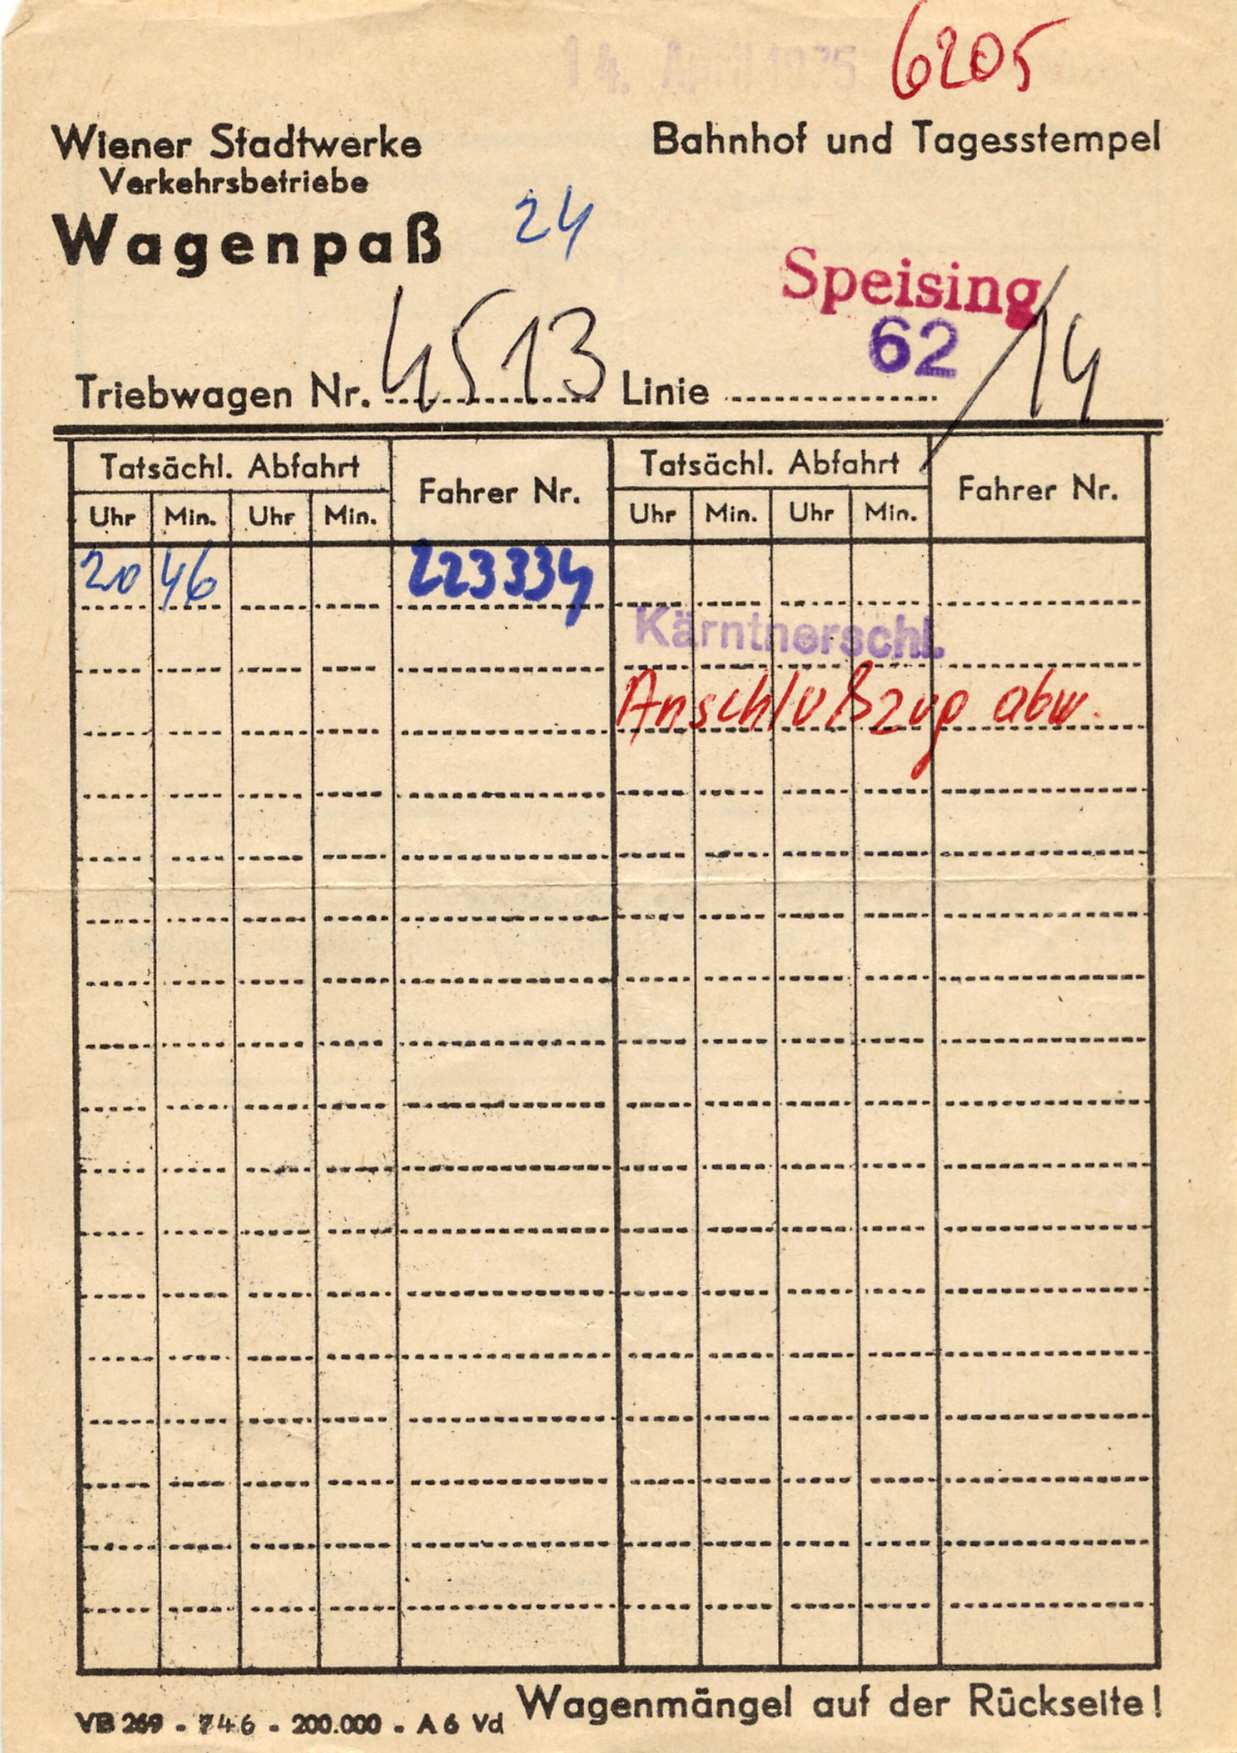 14. April 1975
6205
Wiener Stadtwerke
Verkehrsbetriebe
Wagenpaß
24
Bahnhof und Tagesstempel
Speising
62 / 14
Triebwagen Nr. 4513 Linie
Tatsächl. Abfahrt Fahrer Nr. Tatsächl. Abfahrt Fahrer Nr.
Uhr Min. Uhr Min. Uhr Min. Uhr Min.
20 46 223334
Kärntnerschl.
Anschlußzug abw.
Wagenmängel auf der Rückseite!
VB 269 - 746 - 200.000 - A 6 Vd